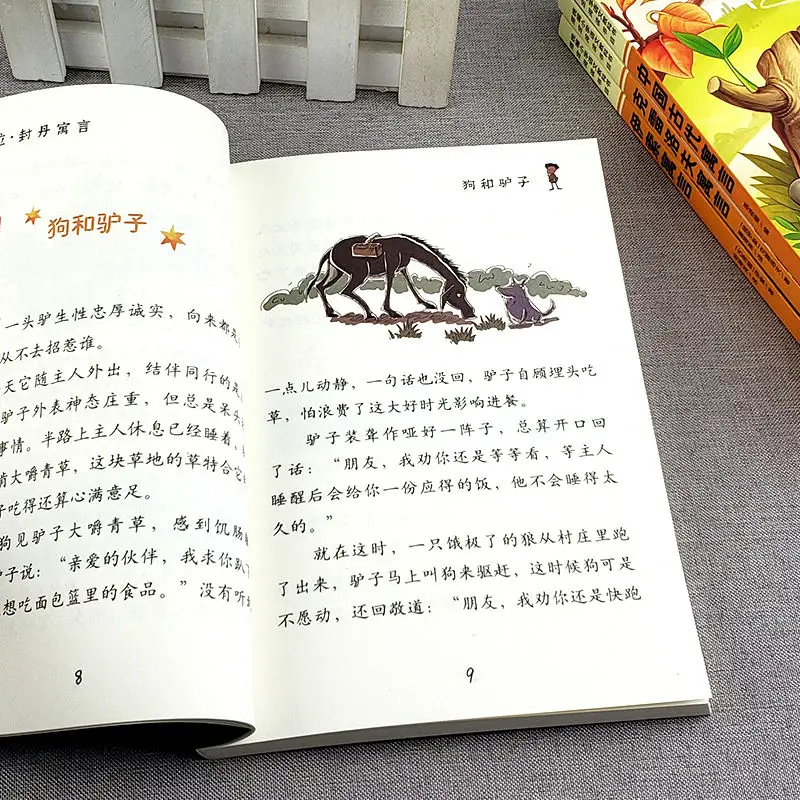 ·封丹寓言
狗和驴子
一头驴生性忠厚诚实，向来都
从不去招惹谁。
天它随主人外出，结伴同行的
驴子外表神态庄重，但总是呆头
事情。半路上主人休息已经睡着，
大嚼青草，这块草地的草特合它
子吃得还算心满意足。
狗见驴子大嚼青草，感到饥肠
子说：“亲爱的伙伴，我求你趴下
想吃面包篮里的食品。”没有听
8
狗和驴子
一点儿动静，一句话也没回，驴子自顾埋头吃
草，怕浪费了这大好时光影响进餐。
驴子装聋作哑好一阵子，总算开口回
了话：“朋友，我劝你还是等等看，等主人
睡醒后会给你一份应得的饭，他不会睡得太
久的。”
就在这时，一只饿极了的狼从村庄里跑
了出来，驴子马上叫狗来驱赶，这时候狗可是
不愿动，还回敬道：“朋友，我劝你还是快跑
9
中国古代寓言
克雷洛夫寓言
伊索寓言